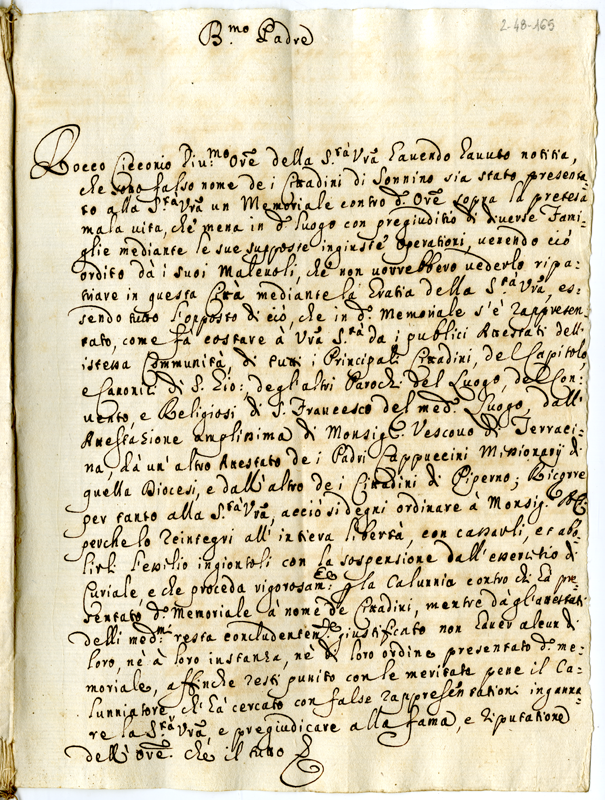 2-48-165
B.mo Padre
Rocco Cicconio Div.mo Ore della S.tà Vra havendo havuto notitia,
che sotto falso nome de i Cittadini di Sonnino sia stato presenta=
to alla S.tà Vra un Memoriale contro d. Ore sopra la pretesa
mala vita, che mena in d. luogo con pregiuditio di diverse Fami=
glie mediante le sue supposte ingiuste operationi, venendo ciò
ordito da i suoi Malevoli, che non vorrebbero vederlo ripa=
triare in questa Città mediante la Gratia della S.tà Vra, es=
sendo tutto l'opposto di ciò, che in d. Memoriale s'è rappresen=
tato, come fà costare à Vra S.tà da i publici Attestati dell'
istessa Communità, di tutti i Principali Cittadini, del Capitolo,
e Canonici di S. Gio:, degl'altri Parochi del Luogo, del Con=
vento, e Religiosi di S. Francesco del med. Luogo, dall'
Attestazione amplissima di Monsig.r Vescovo di Terraci=
na, dà un'altro Attestato de i Padri Cappuccini Missionarij di
quella Diocesi, e dall'altro de i Cittadini di Piperno; Ricorre
per tanto alla S.tà Vra, acciò si degni ordinare à Monsig.
perche lo reintegri all'intiera libertà, con cassarli, et abo=
lirli l'essilio ingiontoli con la sospensione dall'essercitio di
Curiale, e che proceda vigorosam.te p la Calunnia contro chi hà pre=
sentato d. Memoriale à nome de Cittadini, mentre dà gl'attestati
delli med.mi resta concludentem.te giustificato non haver alcun di
loro, nè à loro instanza, nè di loro ordine presentato d. me=
moriale, affinche resti punito con le meritate pene il Ca=
lunniatore ch'hà cercato con false rappresentationi inganna=
re la S.tà Vra, e pregiudicare alla fama, e riputatione
dell'Ore. che il tutto